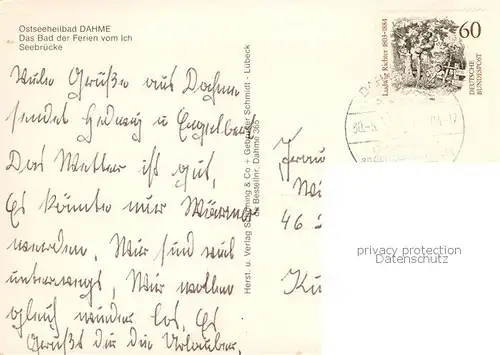 Ostseeheilbad DAHME
Das Bad der Ferien vom Ich
Seebrücke
Viele Grüße aus Dahme
sendet Hedwig u Engelbert
Das Wetter ist gut,
Es könnte nur Wärmer
werden, Wir sind viel
unterwegs, Wir wollen
gleich wieder los. Es
Grüßt dir die Urlauber.
Herst. u. Verlag Schöning & Co + Gebrüder Schmidt - Lübeck
Bestellnr. Dahme 365
Ludwig Richter 1803-1884
60
DEUTSCHE
BUNDESPOST
30.-5.
-17
Frau
46
privacy protection
Datenschutz